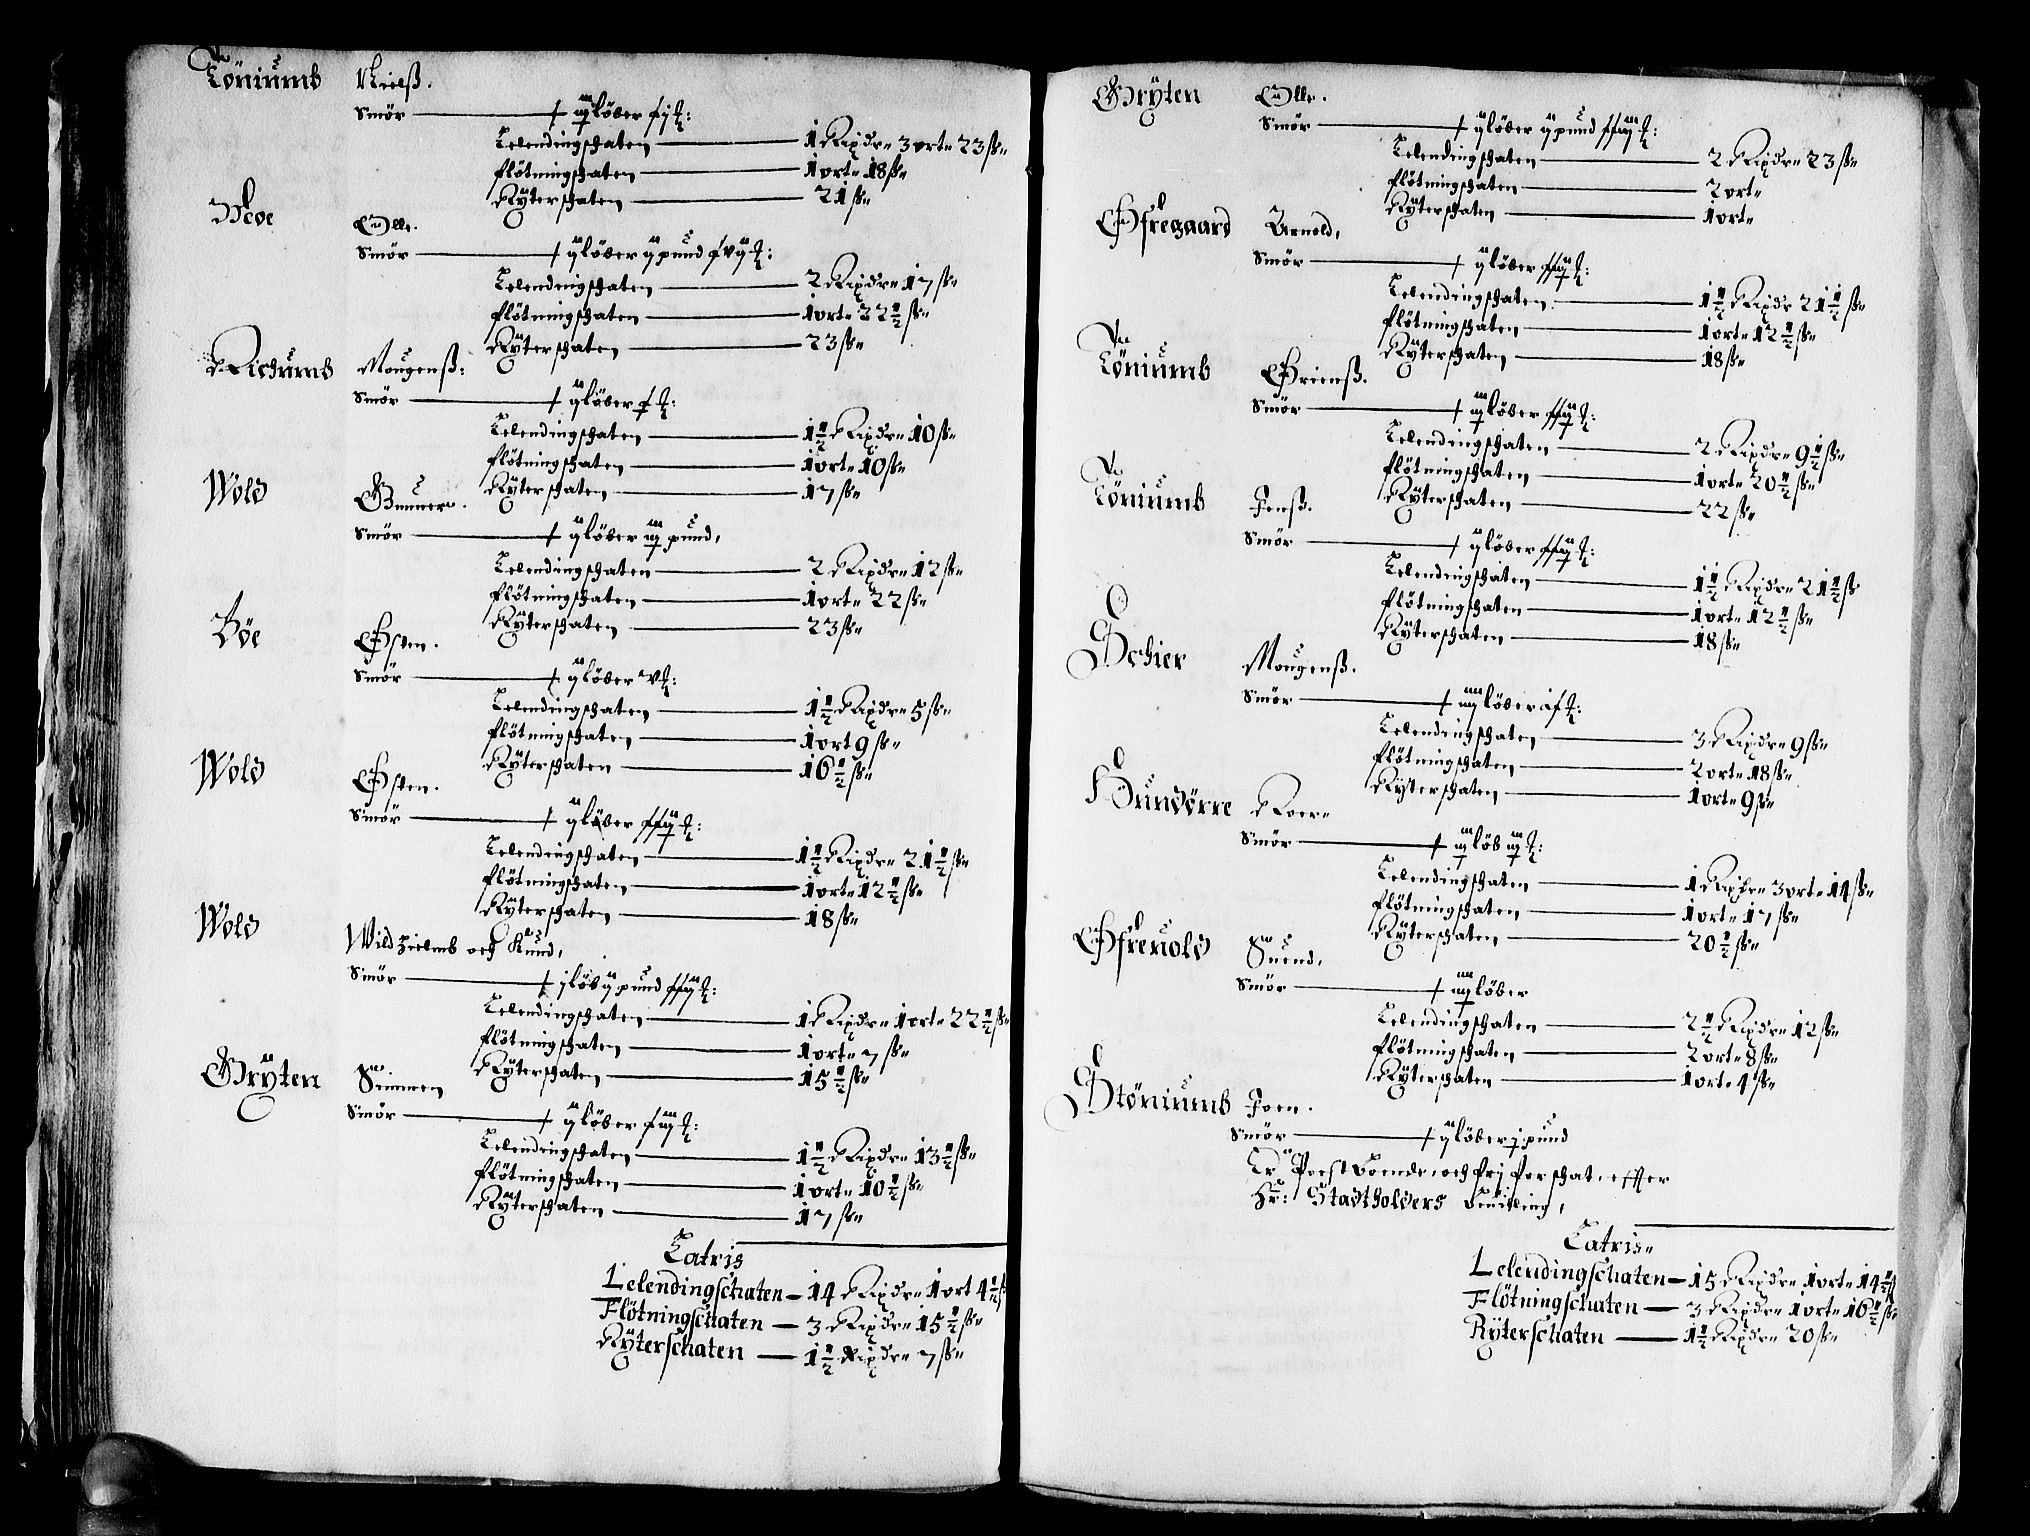 Töniumb Nielß.
Smör — + iij löber
Lelendingschaten — 1 Rixdr 3 ort 23 ß
flötningschaten — 1 ort 18 ß
Rÿterschaten — 21 ß
Moe Olle.
Smör — + ij löber ij pund
Lelendingschaten — 2 Rixdr 17 ß
flötningschaten — 1 ort 22½ ß
Rÿterschaten — 23 ß
Richumb Mougenß:
Smör — + ij löber
Lelendingschaten — 1½ Rixdr 10 ß
flötningschaten — 1 ort 10 ß
Rÿterschaten — 17 ß
Wold Gunner.
Smör — + ij löber iij pund,
Lelendingschaten — 2 Rixdr 12 ß
flötningschaten — 1 ort 22 ß
Rÿterschaten — 23 ß
Böe Esten.
Smör — + ij löber
Lelendingschaten — 1½ Rixdr 5 ß
flötningschaten — 1 ort 9 ß
Rÿterschaten — 16½ ß
Wold Esten.
Smör — + ij löber
Lelendingschaten — 1½ Rixdr 21½ ß
flötningschaten — 1 ort 12½ ß
Rÿterschaten — 18 ß
Wold Wildhielmb och Knud,
Smör — + j löb ij pund
Lelendingschaten — 1 Rixdr 1 ort 22½ ß
flötningschaten — 1 ort 7 ß
Rÿterschaten — 15½ ß
Grÿten Simmen
Smör — + ij löber
Lelendingschaten — 1½ Rixdr 13½ ß
flötningschaten — 1 ort 10½ ß
Rÿterschaten — 17 ß
Latris
Lelendingschaten — 14 Rixdr 1 ort 4½ ß
Flötningschaten — 3 Rixdr 15½ ß
Rÿterschaten — 1½ Rixdr 7 ß
Grÿten Olle.
Smör — + ij löber ij pund
Lelendingschaten — 2 Rixdr 23 ß
flötningschaten — 2 ort
Rÿterschaten — 1 ort
Effregaard Arnold,
Smör — + ij löber
Lelendingschaten — 1½ Rixdr 21½ ß
flötningschaten — 1 ort 12½ ß
Rÿterschaten — 18 ß
Töniumb Erienß.
Smör — + iij löber
Lelendingschaten — 2 Rixdr 9½ ß
flötningschaten — 1 ort 20½ ß
Rÿterschaten — 22 ß
Töniumb Jenß.
Smör — + ij löber
Lelendingschaten — 1½ Rixdr 21½ ß
flötningschaten — 1 ort 12½ ß
Rÿterschaten — 18 ß
Schier Mougenß.
Smör — + iiij löber
Lelendingschaten — 3 Rixdr 9 ß
flötningschaten — 2 ort 18 ß
Rÿterschaten — 1 ort 9 ß
Hundörre Roer
Smör — + iij löb
Lelendingschaten — 1 Rixdr 3 ort 14 ß
flötningschaten — 1 ort 17 ß
Rÿterschaten — 20½ ß
Effreuold Suend,
Smör — + iiij löber
Lelendingschaten — 2½ Rixdr 12 ß
flötningschaten — 2 ort 8 ß
Rÿterschaten — 1 ort 4 ß
Stöniumb Joen.
Smör — + ij löber j pund
Er Postboende och frj for schat, effter
Hr: Stadtholders beuilling,
Latris
Lelendingschaten — 15 Rixdr 1 ort 14½ ß
Flötningschaten — 3 Rixdr 1 ort 16½ ß
Rÿterschaten — 1½ Rixdr 20 ß